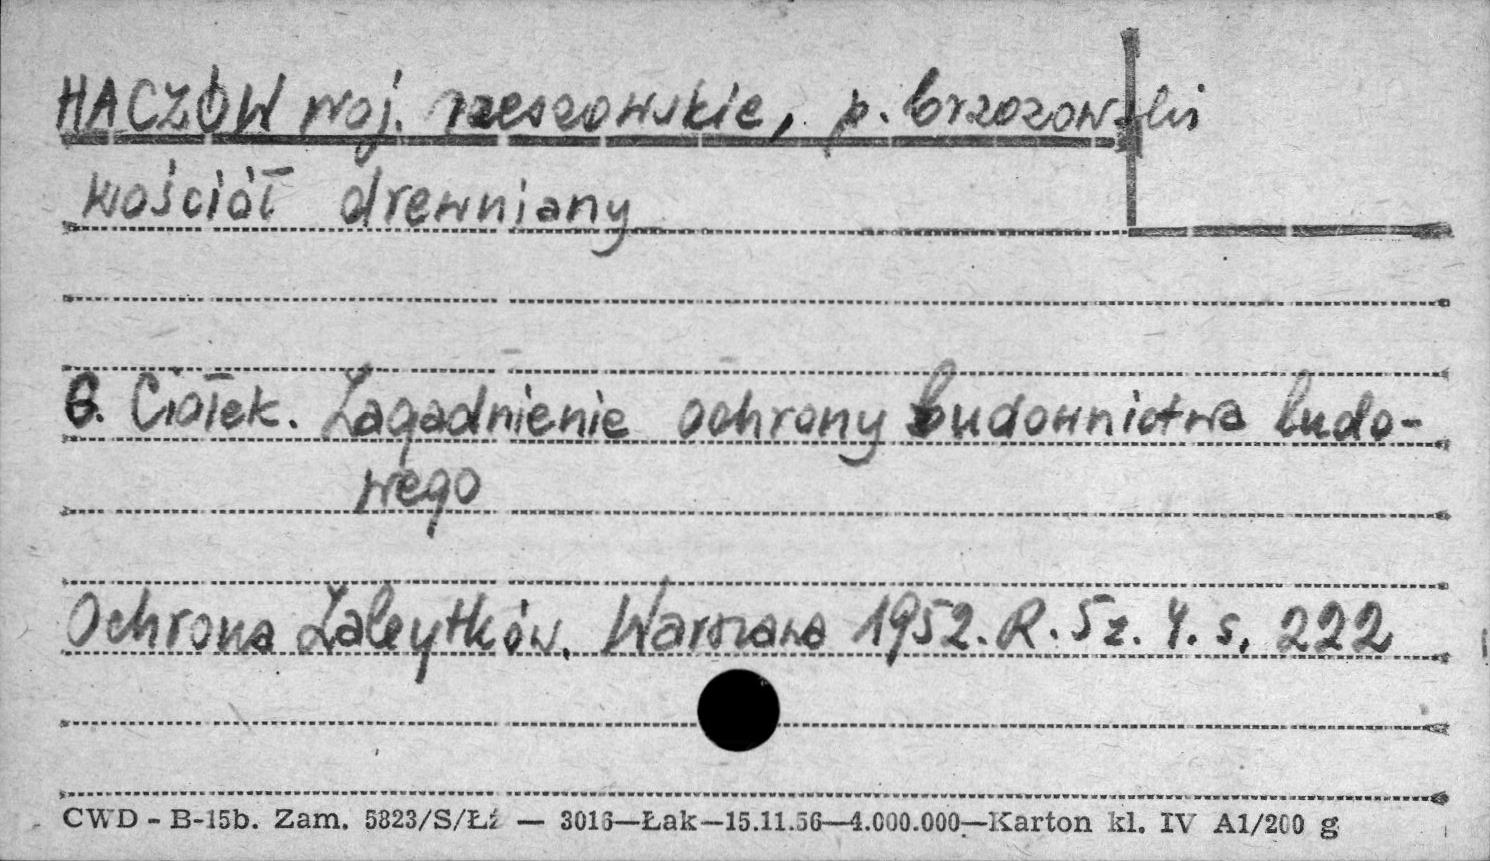 HACZÓW woj. rzeszowskie, p. brzozowski
kościół drewniany
G. Ciołek. Zagadnienie ochrony budownictwa ludo-
wego
Ochrona Zabytków. Warszawa 1952. R. 5 z. 4. s. 222
CWD - B-15b. Zam. 5823/S/Łź — 3016—Łak—15.11.56—4.000.000—Karton kl. IV A1/200 g